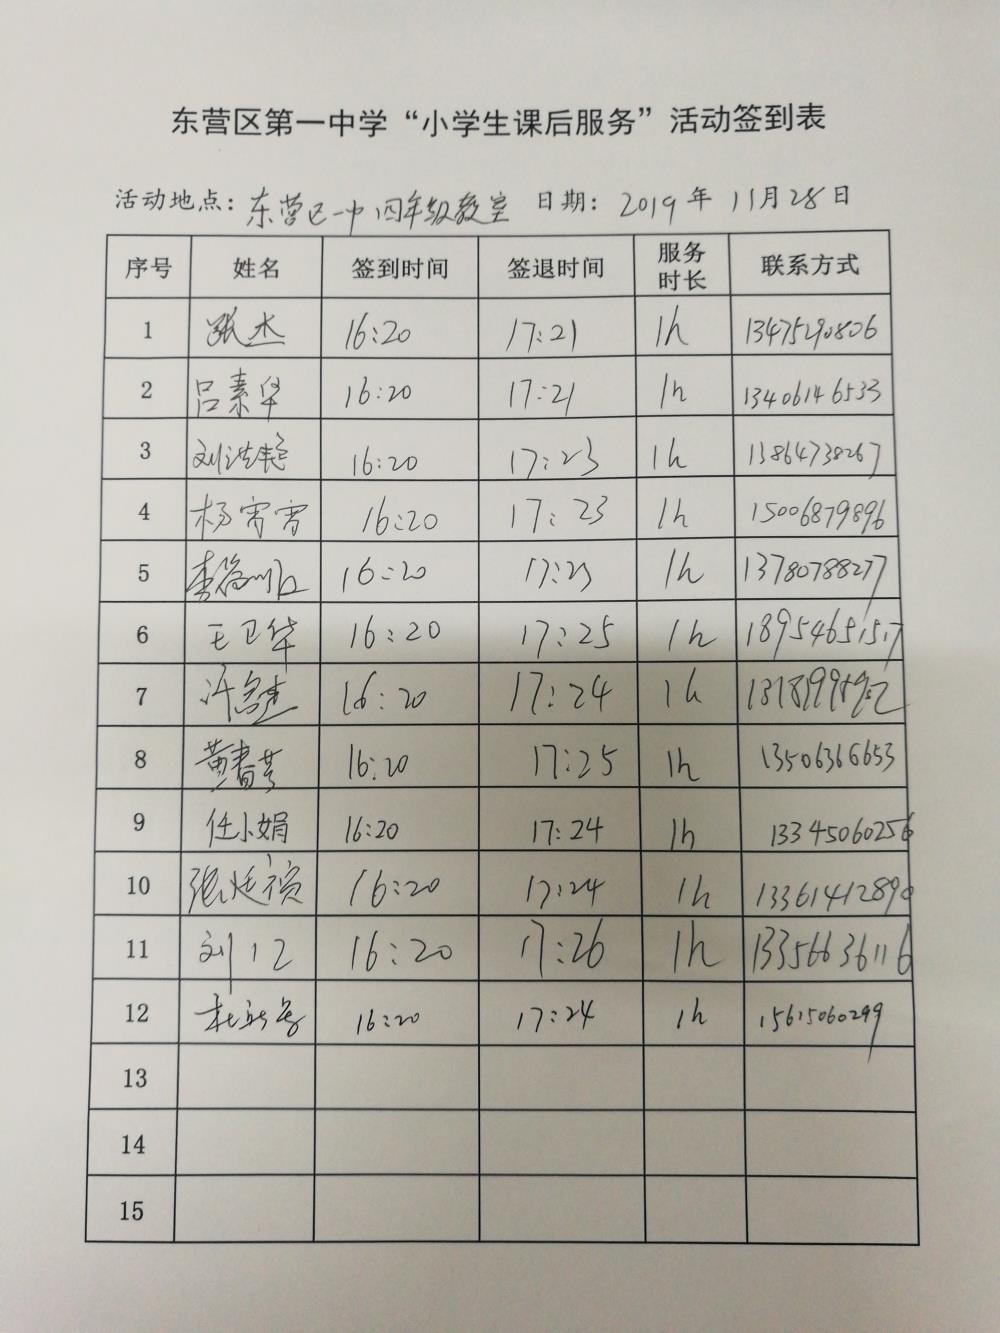 东营区第一中学“小学生课后服务”活动签到表
活动地点：东营区一中四年级教室 日期：2019年11月28日
序号 姓名 签到时间 签退时间 服务时长 联系方式
1 张杰 16:20 17:21 1h 13475290806
2 吕素华 16:20 17:21 1h 13406146533
3 刘洪艳 16:20 17:23 1h 13864738267
4 杨霄霄 16:20 17:23 1h 15006879896
5 16:20 17:23 1h 13780788277
6 王卫华 16:20 17:25 1h 18954651517
7 16:20 17:24 1h
8 黄春芳 16:20 17:25 1h 13506366653
9 任小娟 16:20 17:24 1h 13345060256
10 张廷祯 16:20 17:24 1h 13361412890
11 刘 16:20 17:26 1h 13356636116
12 杜 16:20 17:24 1h 15615060299
13
14
15